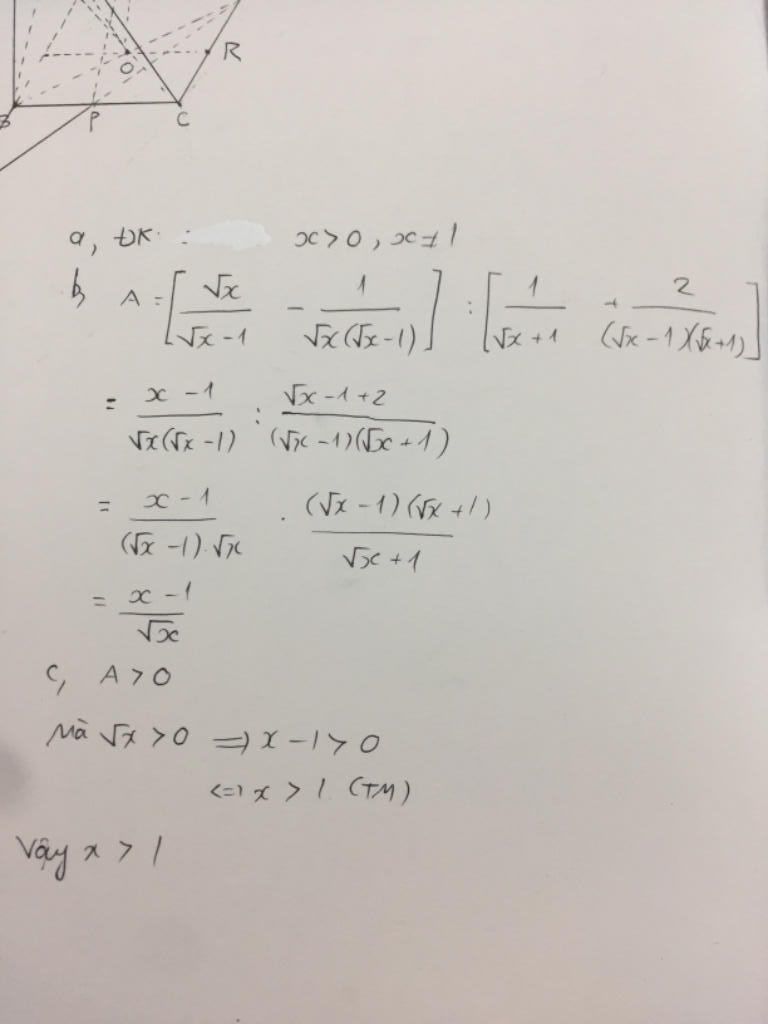 O R
B P C
a, ĐK : x > 0 , x ≠ 1
b, A = [ √x / (√x - 1) - 1 / (√x(√x - 1)) ] : [ 1 / (√x + 1) + 2 / ((√x - 1)(√x + 1)) ]
= (x - 1) / (√x(√x - 1)) : (√x - 1 + 2) / ((√x - 1)(√x + 1))
= (x - 1) / ((√x - 1).√x) . ((√x - 1)(√x + 1)) / (√x + 1)
= (x - 1) / √x
c, A > 0
Mà √x > 0 => x - 1 > 0
<=> x > 1 (TM)
Vậy x > 1